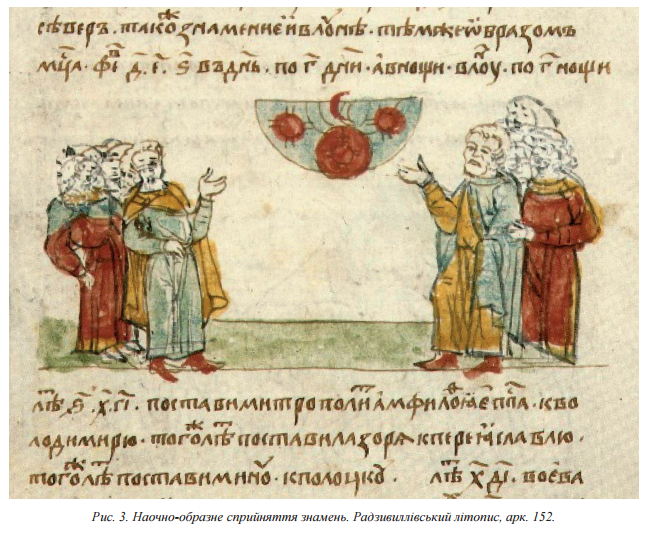 сѣверъ. тако знамение и в лꙋнѣ. тѣм же ѡбразомъ
мц҃а. фе д҃. е҃. ѕ҃ въ дн҃ь. по г҃ дн҃и. а в нощи. в лꙋ. по г҃ нощи
лѣ ҂ѕ҃. х҃. г҃і. постави митрополи амфилоѡ еп҃па. к во
лодимирю. тог лѣ постави лазорѧ к переꙗславлю.
тог лѣ постави минꙋ. к полоцкꙋ. лѣ х҃ д҃і. воева
Рис. 3. Наочно-образне сприйняття знамень. Радзивиллівський літопис, арк. 152.